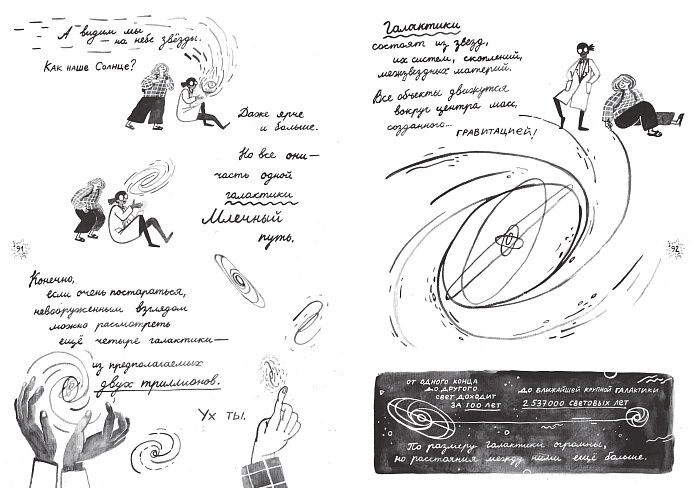 А видим мы
— на небе звёзды.
Как наше Солнце?
Даже ярче
и больше.
Но все они —
часть одной
галактики
Млечный
путь.
91
Конечно,
если очень постараться,
невооруженным взглядом
можно рассмотреть
ещё четыре галактики —
из предполагаемых
двух триллионов.
Ух ты.
Галактики
состоят из звезд,
их систем, скоплений,
межзвездных материй.
Все объекты движутся
вокруг центра масс,
созданного...
гравитацией!
92
от одного конца
до другого
свет доходит
за 100 лет
до ближайшей крупной галактики
2 537000 световых лет
По размеру галактики огромны,
но расстояния между ними ещё больше.